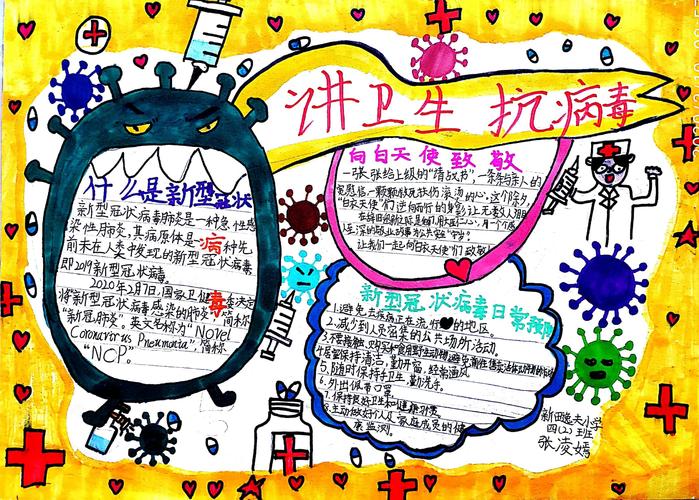 讲卫生 抗病毒
什么是新型冠状病毒
新型冠状病毒肺炎是一种急性感
染性肺炎,其病原体是一种先
前未在人类中发现的新型冠状病毒
即2019新型冠状病毒。
2020年2月7日,国家卫健委决定
将"新型冠状病毒感染的肺炎"简称
"新冠肺炎"。英文名称为"Novel
Coronavirus Pneumonia",简称
"NCP"。
向白天使致敬
一张张给上级的"请战书",一条条与亲人的
"白衣天使"们逆向而行的身影让无数人泪目
让我们一起向白衣天使们致敬
新型冠状病毒日常预防
1.避免去疾病正在流行的地区。
2.减少到人员密集的公共场所活动。
4.居室保持清洁,勤开窗,经常通风
5.随时保持手卫生,勤洗手。
6.外出佩带口罩
7.保持良好卫生和健康习惯
8.主动做好个人及家庭成员的健
康监测。
新田逸夫小学
四(2)班
张凌嫣